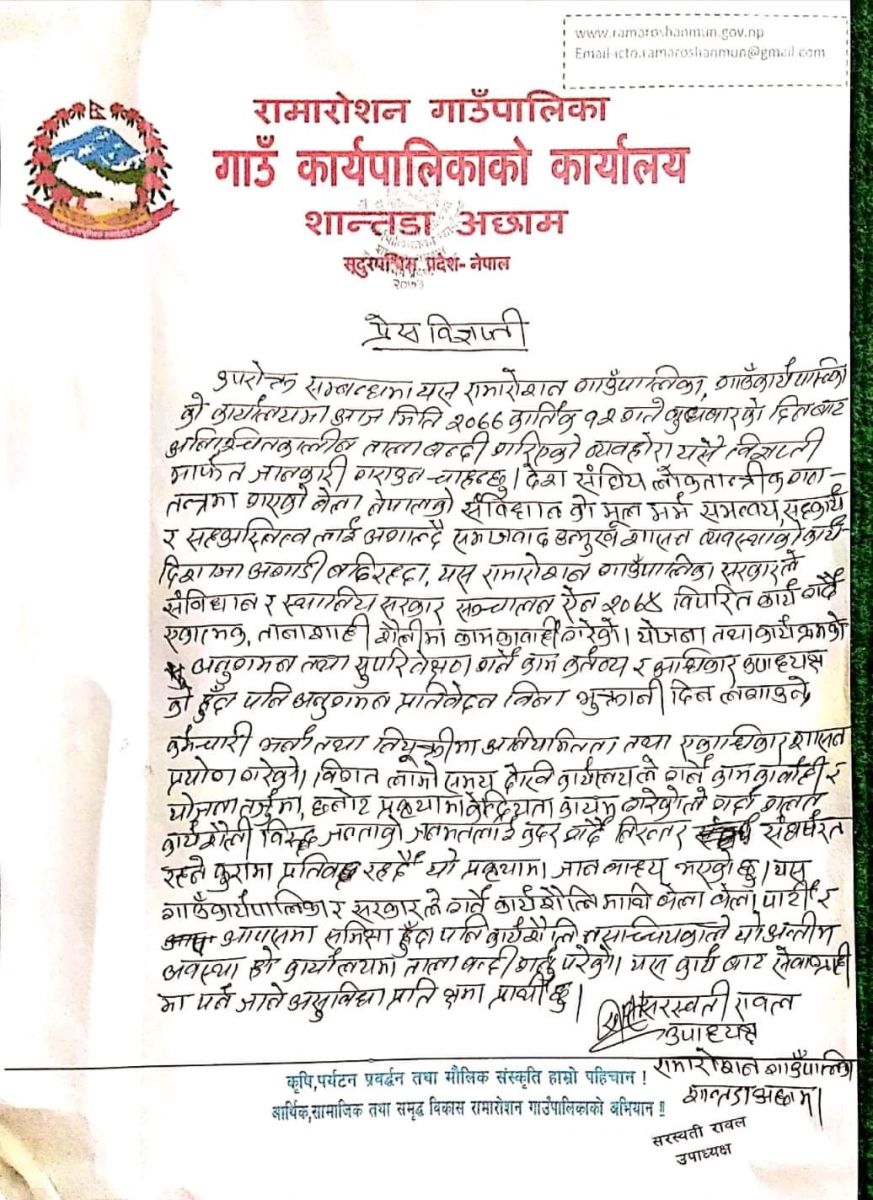 www.ramaroshanmun.gov.np
Email-icto.ramaroshanmun@gmail.com
रामारोशन गाउँपालिका
गाउँ कार्यपालिकाको कार्यालय
शान्तडा अछाम
सूदुरपश्चिम प्रदेश- नेपाल
२०७३
प्रेस विज्ञप्ती
उपरोक्त सम्बन्धमा यस रामारोशन गाउँपालिका, गाउँकार्यपालिका
को कार्यालयमा आज मिति २०७७ कार्तिक १२ गते बुधबारका दिनबाट
अनिश्चितकालीन तालाबन्दी गरिएको व्यवहोरा यसै विज्ञप्ती
मार्फत जानकारी गराउन चाहन्छु। देश संघिय लोकतान्त्रीक गण-
तन्त्रमा गएको बेला नेपालको संविधान को मूल मर्म समन्वय, सहकार्य
र सहअस्तित्व लाई अंगाल्दै समाजवाद उन्मुख शासन व्यवस्थाको कार्य-
दिशामा अगाडी बढिरहदा, यस रामारोशन गाउँपालिका सरकारले
संविधान र स्थानिय सरकार सञ्चालन ऐन २०७४ विपरित कार्य गर्दै
एकात्मक, तानाशाही शैलीमा कामकारवाही गरेको। योजना तथा कार्यक्रमको
अनुगमन तथा सुपरिवेक्षण गर्ने काम कर्तव्य र अधिकार उपाध्यक्ष
को हुँदा पनि अनुगमन प्रतिवेदन बिना भुक्तानी दिन लगाउने,
कर्मचारी भर्ना तथा नियूक्तीमा अनियमितता तथा एकाधिकार शासन
प्रयोग गरेको। विगत लामो समय देखि कार्यालयले गर्ने कामकार्वाही र
योजना तर्जुमा, छनोट प्रकृयामा केन्द्रियता कायम गरेकोले गर्दा गलत
कार्यशैली विरुद्ध जनताको जनमतलाई कदर गर्दै निरन्तर संघर्षरत
रहने कुरामा प्रतिवद्ध रहदै यो प्रकृयामा जान बाध्य भएको छु। यस
गाउँकार्यपालिका र सरकारले गर्ने कार्यशैलि माथि बेला बेला पार्टी र
आपसमा समिक्षा हुँदा पनि कार्यशैली नसच्चिएकाले यो अन्तीम
अवस्था को कार्यालयमा तालाबन्दी गर्नु परेको। यस कार्य बाट सेवाग्राही
मा पर्न जाने असुविधा प्रति क्षमा प्रार्थी छु।
सरस्वती रावल
उपाध्यक्ष
रामारोशन गाउँपालिका
शान्तडा अछाम।
कृषि,पर्यटन प्रवर्द्धन तथा मौलिक संस्कृति हाम्रो पहिचान !
आर्थिक,सामाजिक तथा समृद्ध विकास रामारोशन गाउँपालिकाको अभियान !!
सरस्वती रावल
उपाध्यक्ष